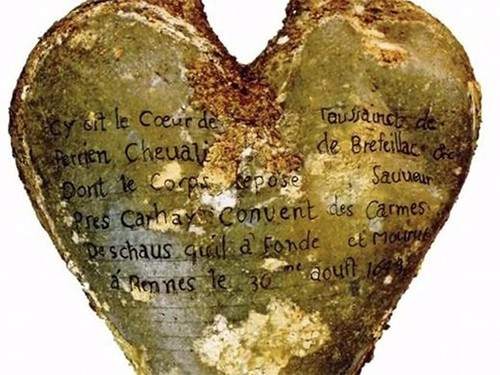 Cy Git le Coeur de Taussainct de
Perrien Chevali de Brefeillac &c
Dont le Corps repose Sauveur
Pres Carhay Convent des Carmes
Deschaus qu'il à Fondé et Mourut
à Rennes le 30 me aoust 1649